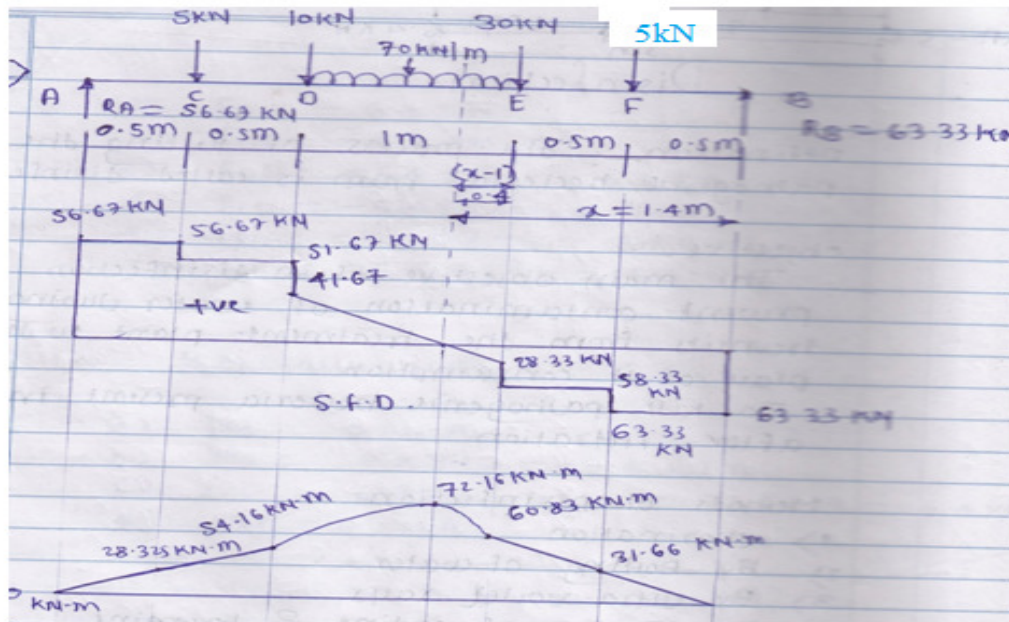 5KN 10KN 30KN 5kN
70 KN/m
A C D E F B
RA = 56.67 KN
RB = 63.33 KN
0.5m 0.5m 1m 0.5m 0.5m
(x-1)
x = 1.4m
56.67 KN
56.67 KN
51.67 KN
41.67
+ve
28.33 KN
58.33 KN
S.F.D.
63.33 KN
63.33 KN
72.16 KN.m
54.16 KN.m
60.83 KN.m
28.325 KN.m
31.66 KN.m
KN.m